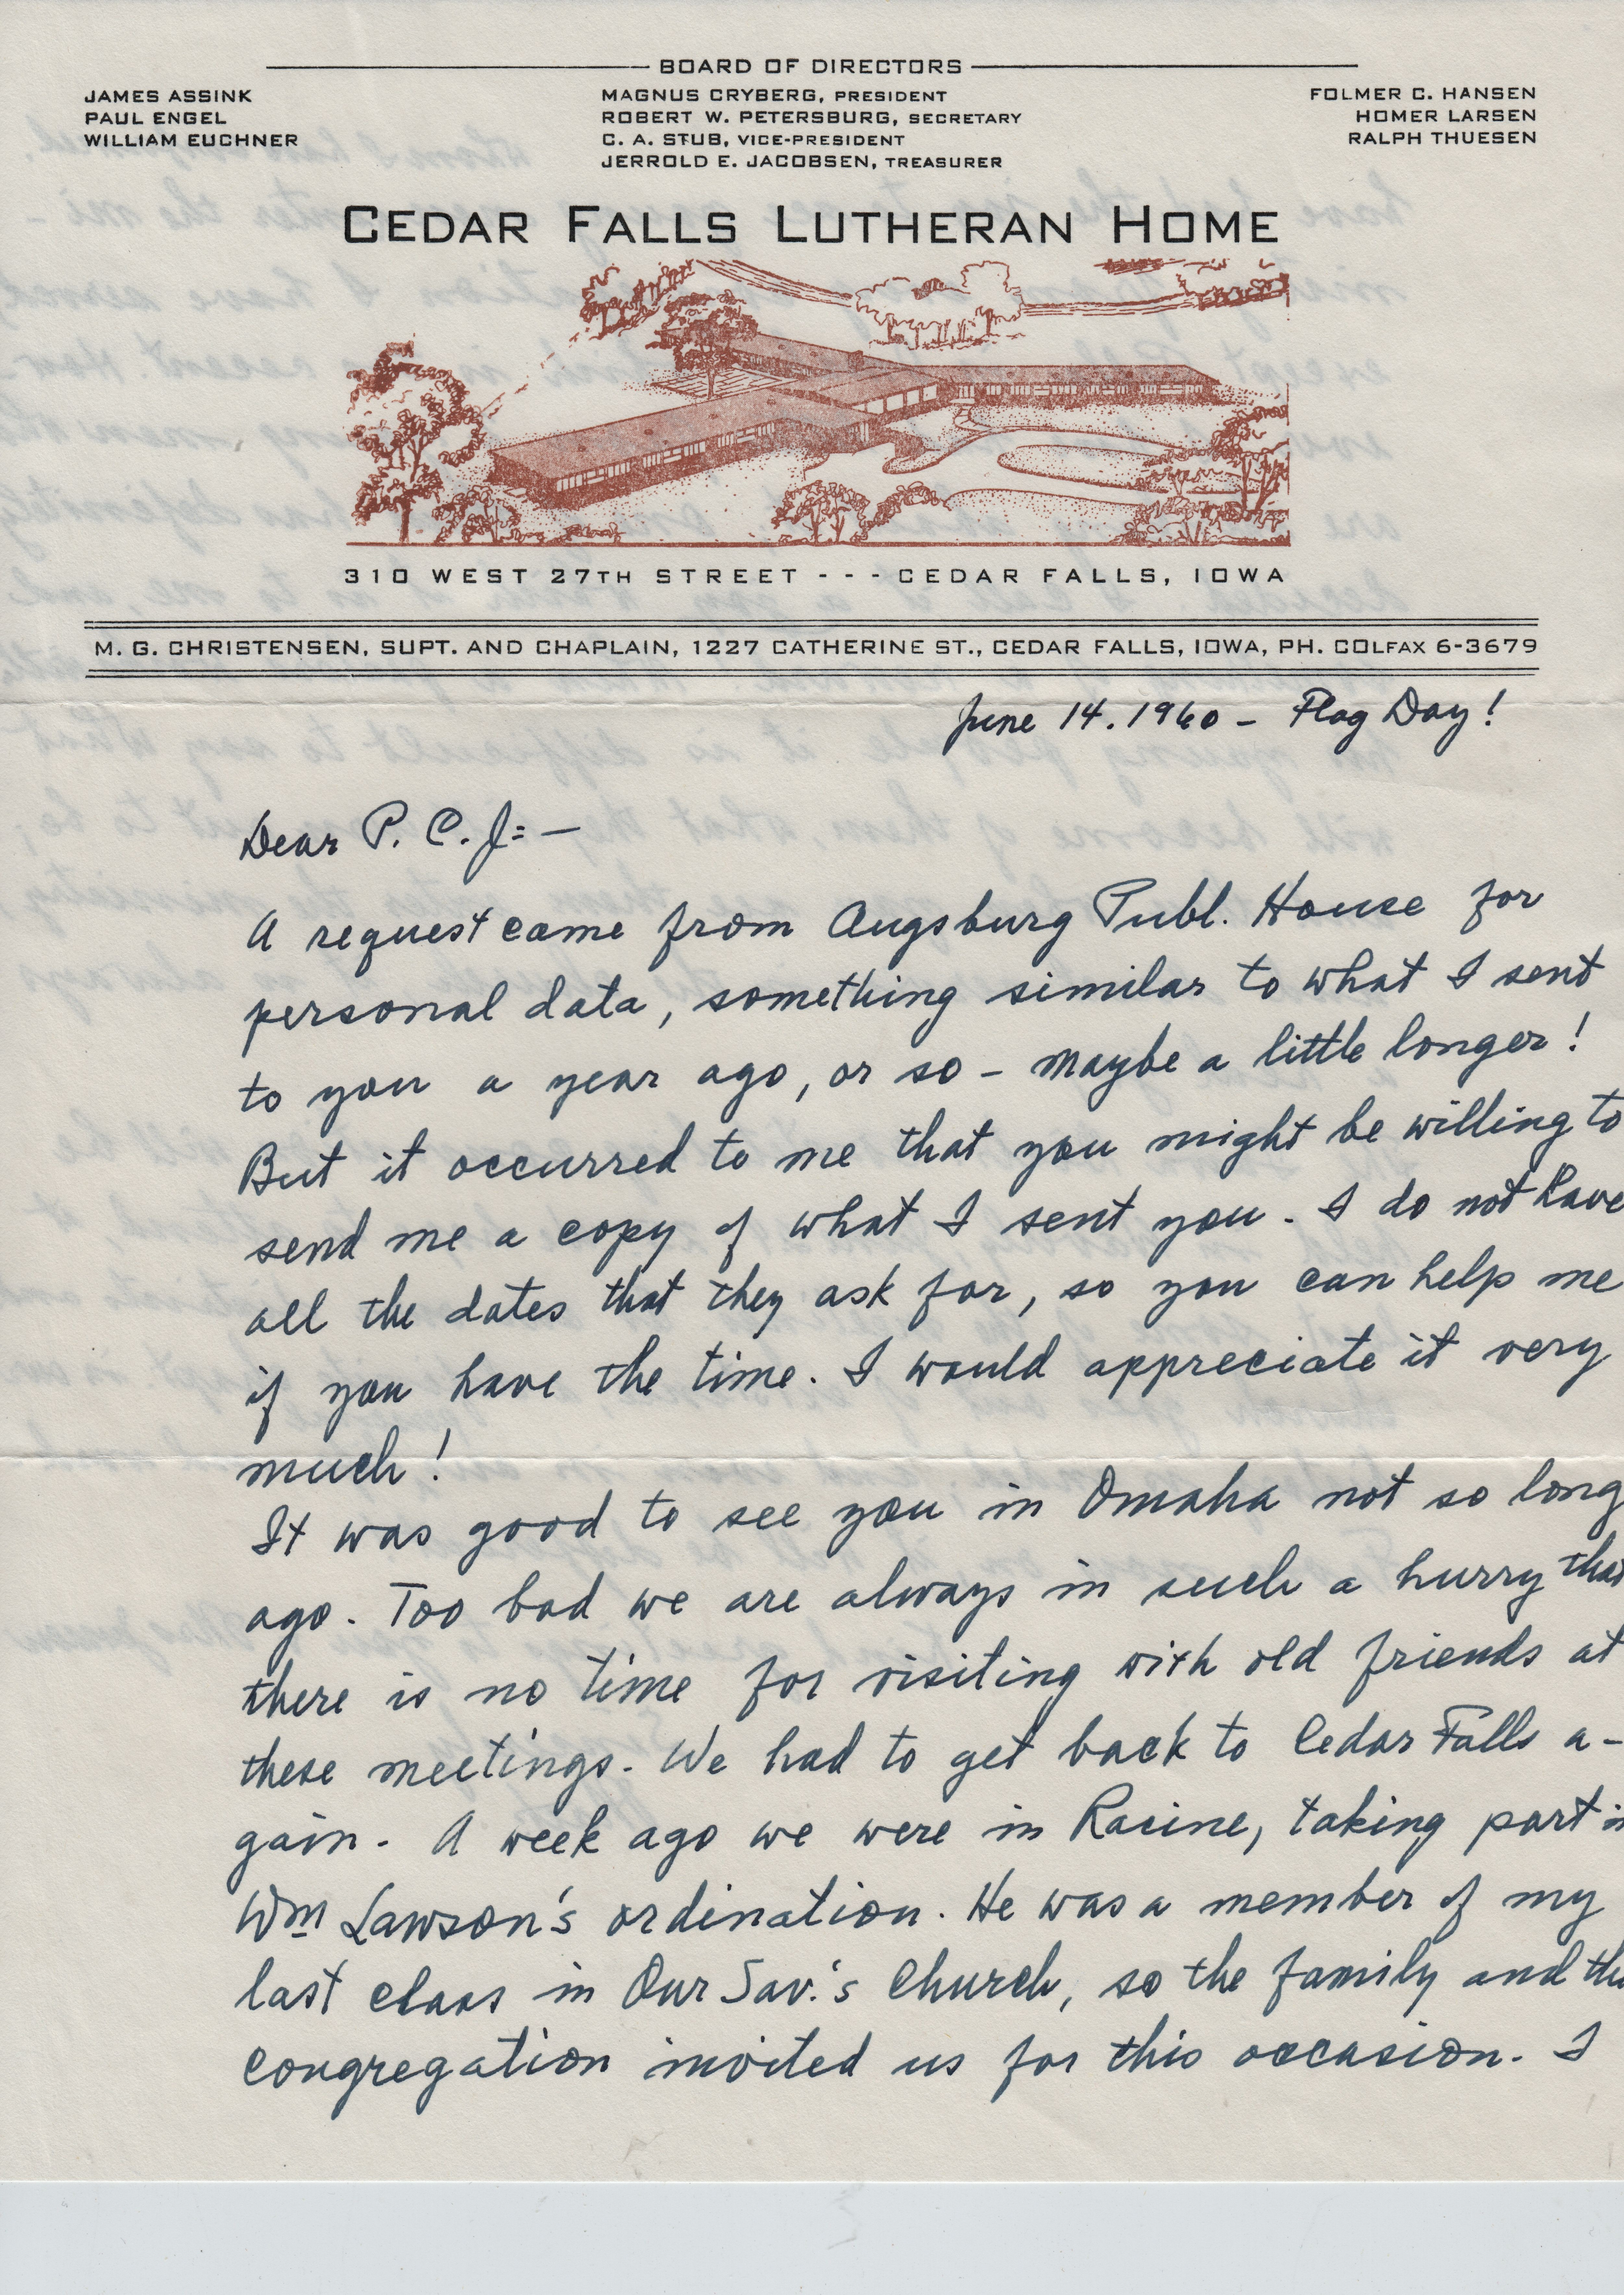 BOARD OF DIRECTORS
JAMES ASSINK
PAUL ENGEL
WILLIAM EUCHNER
MAGNUS CRYBERG, PRESIDENT
ROBERT W. PETERSBURG, SECRETARY
C. A. STUB, VICE-PRESIDENT
JERROLD E. JACOBSEN, TREASURER
FOLMER C. HANSEN
HOMER LARSEN
RALPH THUESEN
CEDAR FALLS LUTHERAN HOME
310 WEST 27TH STREET - - - CEDAR FALLS, IOWA
M. G. CHRISTENSEN, SUPT. AND CHAPLAIN, 1227 CATHERINE ST., CEDAR FALLS, IOWA, PH. COLFAX 6-3679
June 14. 1960 - Flag Day!
Dear P. C. J:-
A request came from Augsburg Publ. House for
personal data, something similar to what I sent
to you a year ago, or so - maybe a little longer!
But it occurred to me that you might be willing to
send me a copy of what I sent you. I do not have
all the dates that they ask for, so you can help me
if you have the time. I would appreciate it very
much!
It was good to see you in Omaha not so long
ago. Too bad we are always in such a hurry that
there is no time for visiting with old friends at
these meetings. We had to get back to Cedar Falls a-
gain. A week ago we were in Racine, taking part in
Wm Lawson's ordination. He was a member of my
last class in Our Sav.'s Church, so the family and the
congregation invited us for this occasion. I